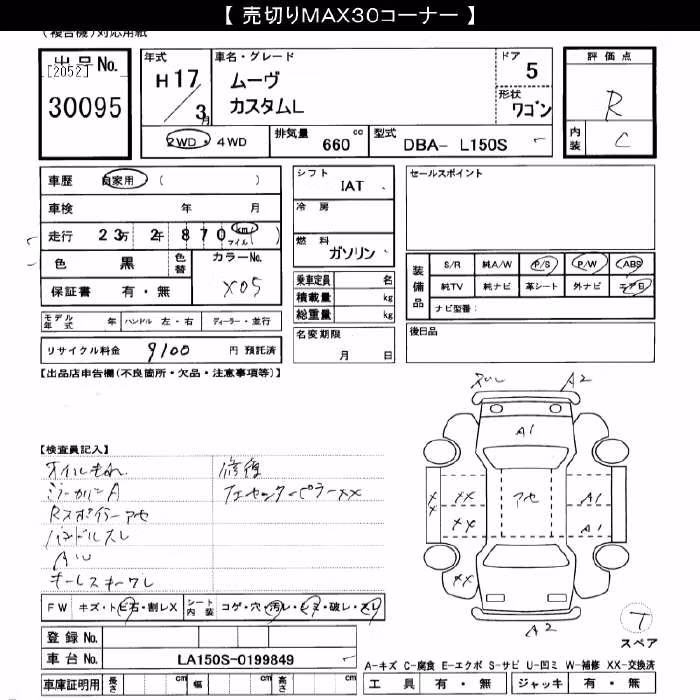 【 売切りMAX30コーナー 】
(複合機)対応用紙
出品No.
[2052]
30095
年式
H17/3月
車名・グレード
ムーヴ
カスタムL
ドア 5
形状 ワゴン
評価点
R
内装 C
2WD・4WD
排気量 660 cc
型式 DBA- L150S
車歴 自家用 ( )
車検 年 月
走行 23万 2千 870 km マイル ( )
色 黒 色替 カラーNo. X05
保証書 有・無
モデル年式 年 ハンドル 左・右 ディーラー・並行
リサイクル料金 9100 円 預託済
シフト IAT
冷房
燃料 ガソリン
乗車定員 名
積載量 kg
総重量 kg
名変期限 月 日
セールスポイント
装備品
S/R 純A/W P/S P/W ABS
純TV 純ナビ 革シート 外ナビ エアB
ナビ型番:
後日品
【出品店申告欄(不良箇所・欠品・注意事項等)】
【検査員記入】
オイルもれ
ミラーカバーA
Rスポイラーアセ
ハンドルスレ
キーレスキーワレ
修復
センターピラーXX
A2
A1
アセ
XX
XX
XX
XX
A1
A1
XX
A2
T
スペア
FW キズ・トビ石・割レX シート内装 コゲ・穴・汚レ・シミ・破レ・スレ
登録No.
車台No. LA150S-0199849
車庫証明用 長さ cm 幅 cm 高さ cm
A-キズ C-腐食 E-エクボ S-サビ U-凹ミ W-補修 XX-交換済
工具 有・無 ジャッキ 有・無